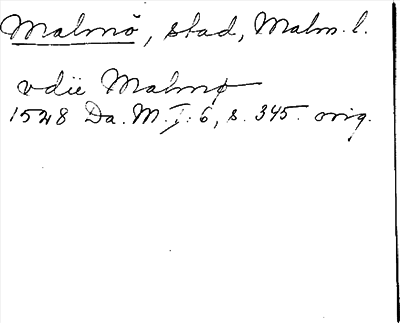 Malmö, stad, Malm. l.
vdü Malmø
1528 Da. M. I: 6, s. 345. orig.